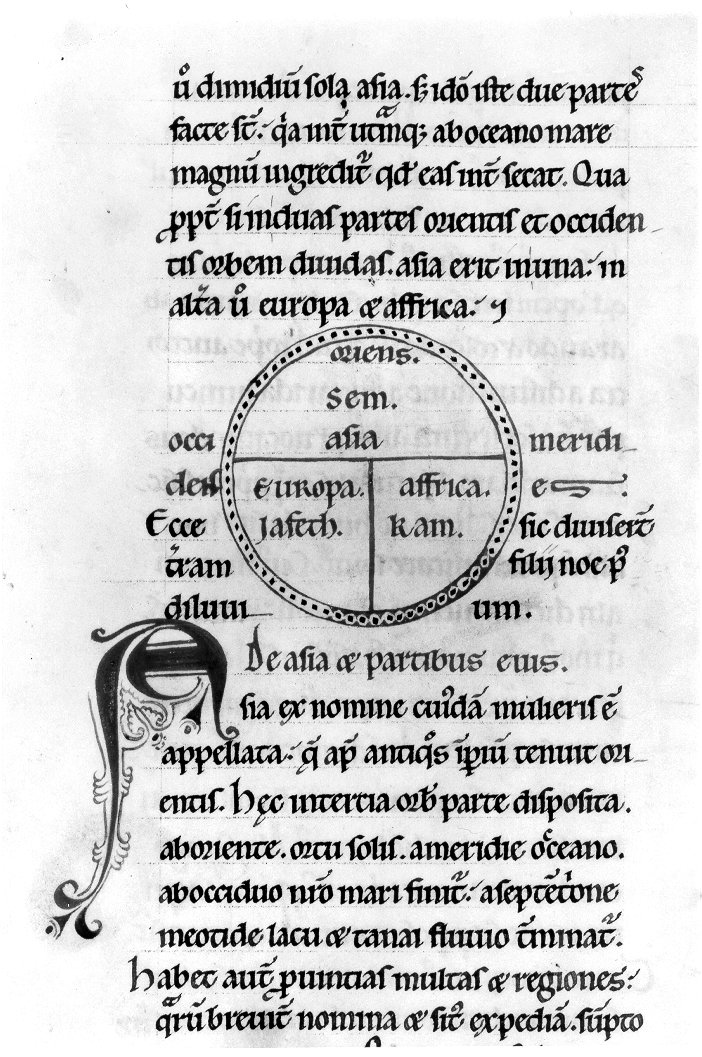 ův dimidiũ sola asia. S; idõ iste due partes
facte st̃. q̇a int̃ utrãq; ab oceano mare
magnũ ingredit᷑ qd' eas int̃ secat. Qua
ꝓpt̃ si in duas partes orientis et occiden
tis orbem diuidas. asia erit in una. in
alt̃a ů europa & affrica.
oriens.
Sem.
occi asia meridi
dens Europa. affrica. e
Ecce Iafeth. kam. sic diuisert̃
t̃ram filii noe p᷒
diluui um.
De asia & partibus eius.
Asia ex nomine cui᷒dã mulieris ẽ
appellata. q̃ ap̃ antiq᷒s ĩꝑiũ tenuit ori
entis. Hęc in tercia orb̃ parte disposita.
ab oriente. ortu solis. a meridie oceano.
ab occiduo nr̃o mari finit᷑. a septẽt̊one
meotide lacu & tanai fluuio t̃minat᷑.
Habet aut̃ ꝓuintias multas & regiones.
qrũ breuit̃ nomina & sit᷒ expediã. sũpto